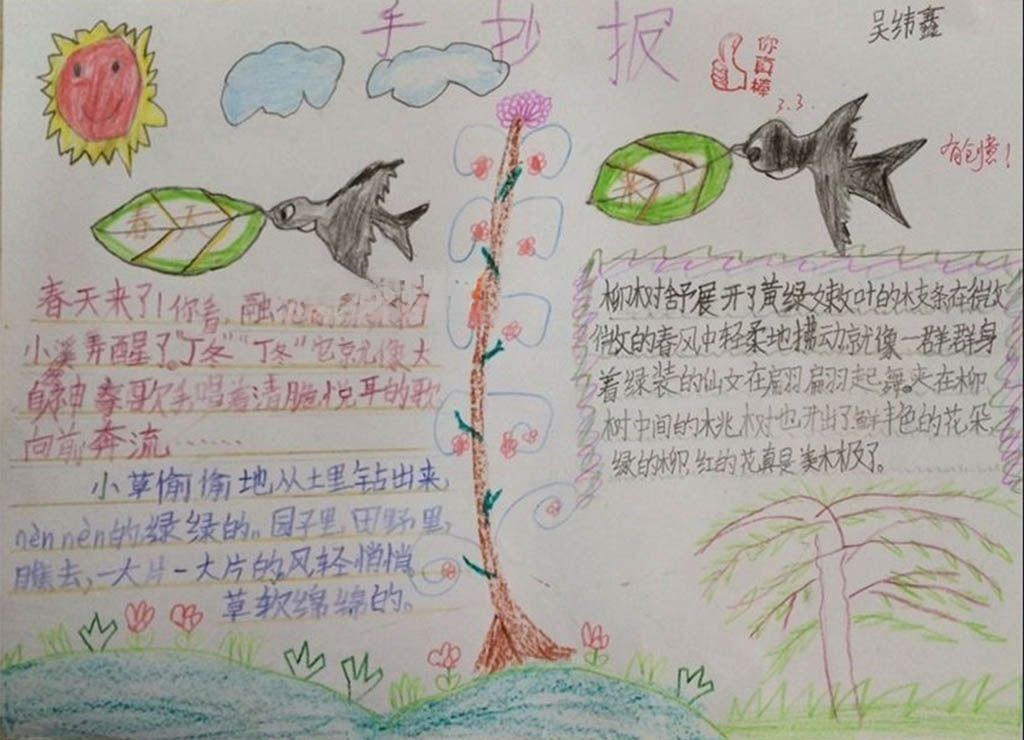 手抄报
吴纬鑫
你真棒
3.3.
有创意!
春天
春天来了!你看,融化的
小溪弄醒了。"丁冬""丁冬"它就像大
自神奏歌手唱着清脆悦耳的歌
向前奔流……
小草偷偷地从土里钻出来,
nèn nèn的绿绿的。园子里,田野里,
瞧去,一大片一大片的,风轻悄悄,
草软绵绵的。
柳树舒展开了黄绿嫩叶的枝条在微
微的春风中轻柔地拂动就像一群群身
着绿装的仙女在扁羽扁羽起舞。夹在柳
树中间的桃树也开出了鲜丰色的花朵,
绿的柳,红的花真是美木极了。